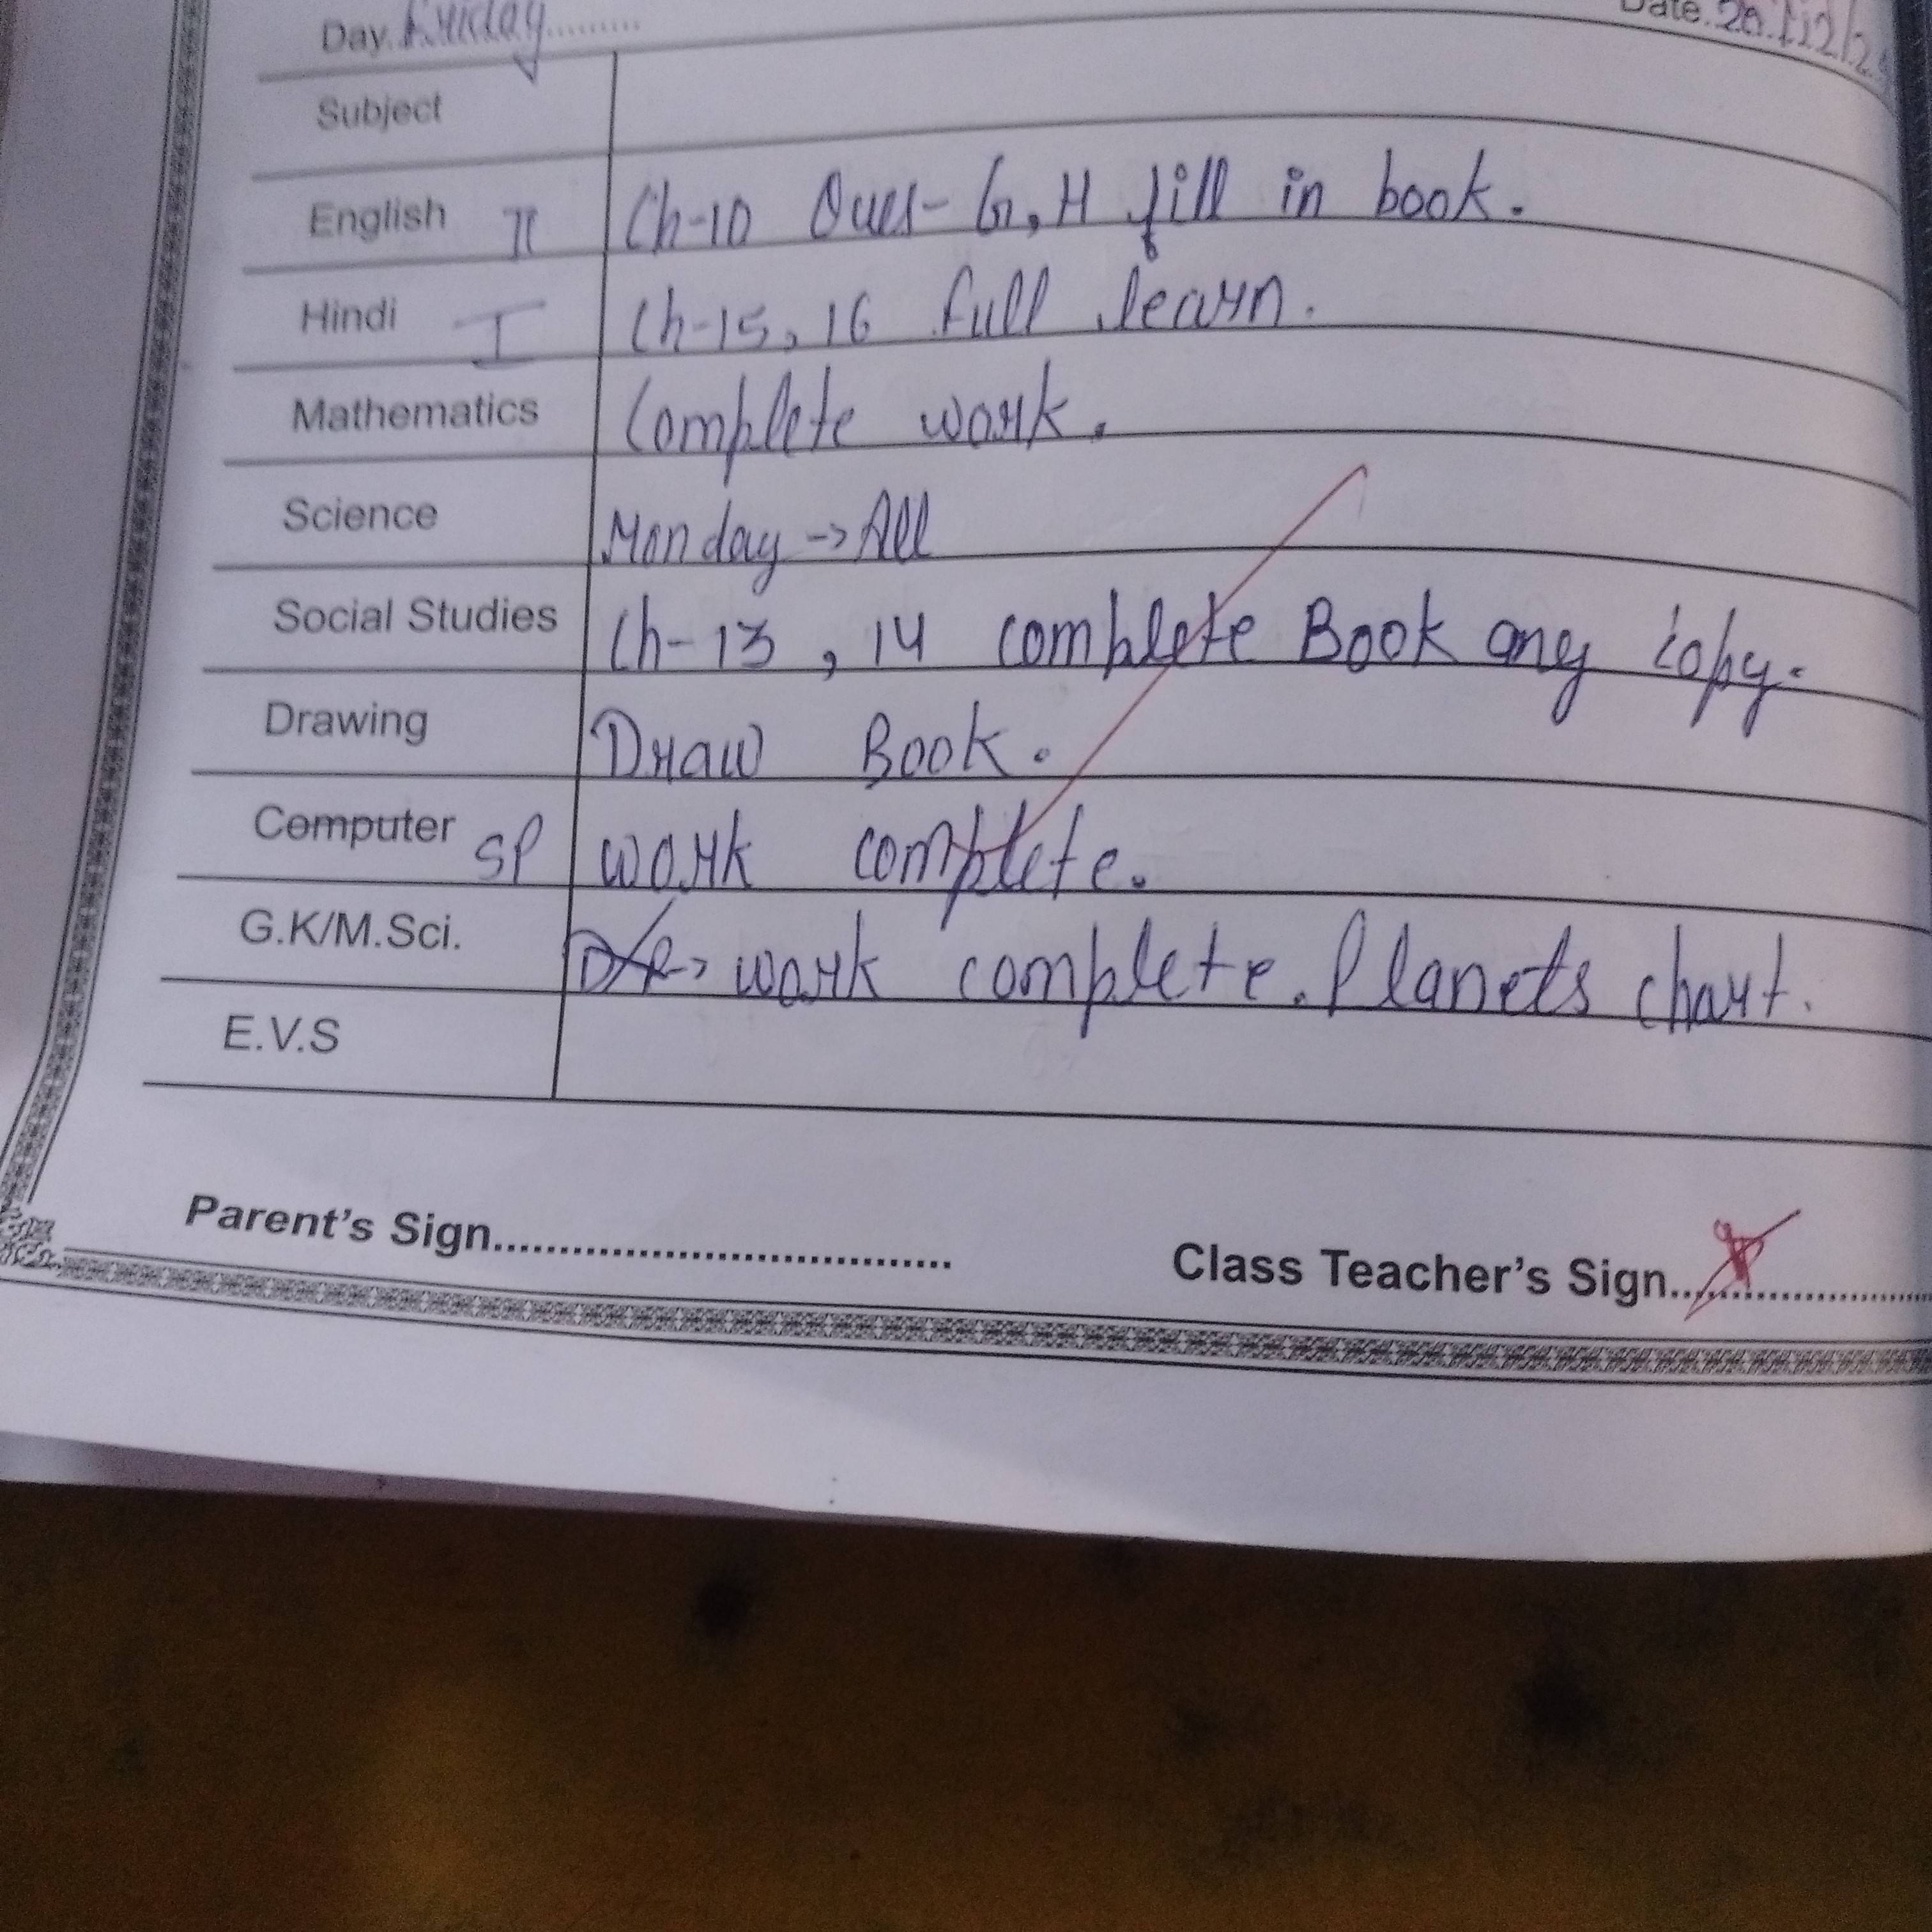 Day. Friday.........
Date. 20.12/2
Subject
English II Ch-10 Ques- G, H fill in book.
Hindi I Ch-15, 16 full learn.
Mathematics Complete work.
Science Monday -> All
Social Studies Ch-13, 14 complete Book any copy.
Drawing Draw Book.
Computer SP work complete.
G.K/M.Sci. work complete. Planets chart.
E.V.S
Parent's Sign..................................
Class Teacher's Sign........................